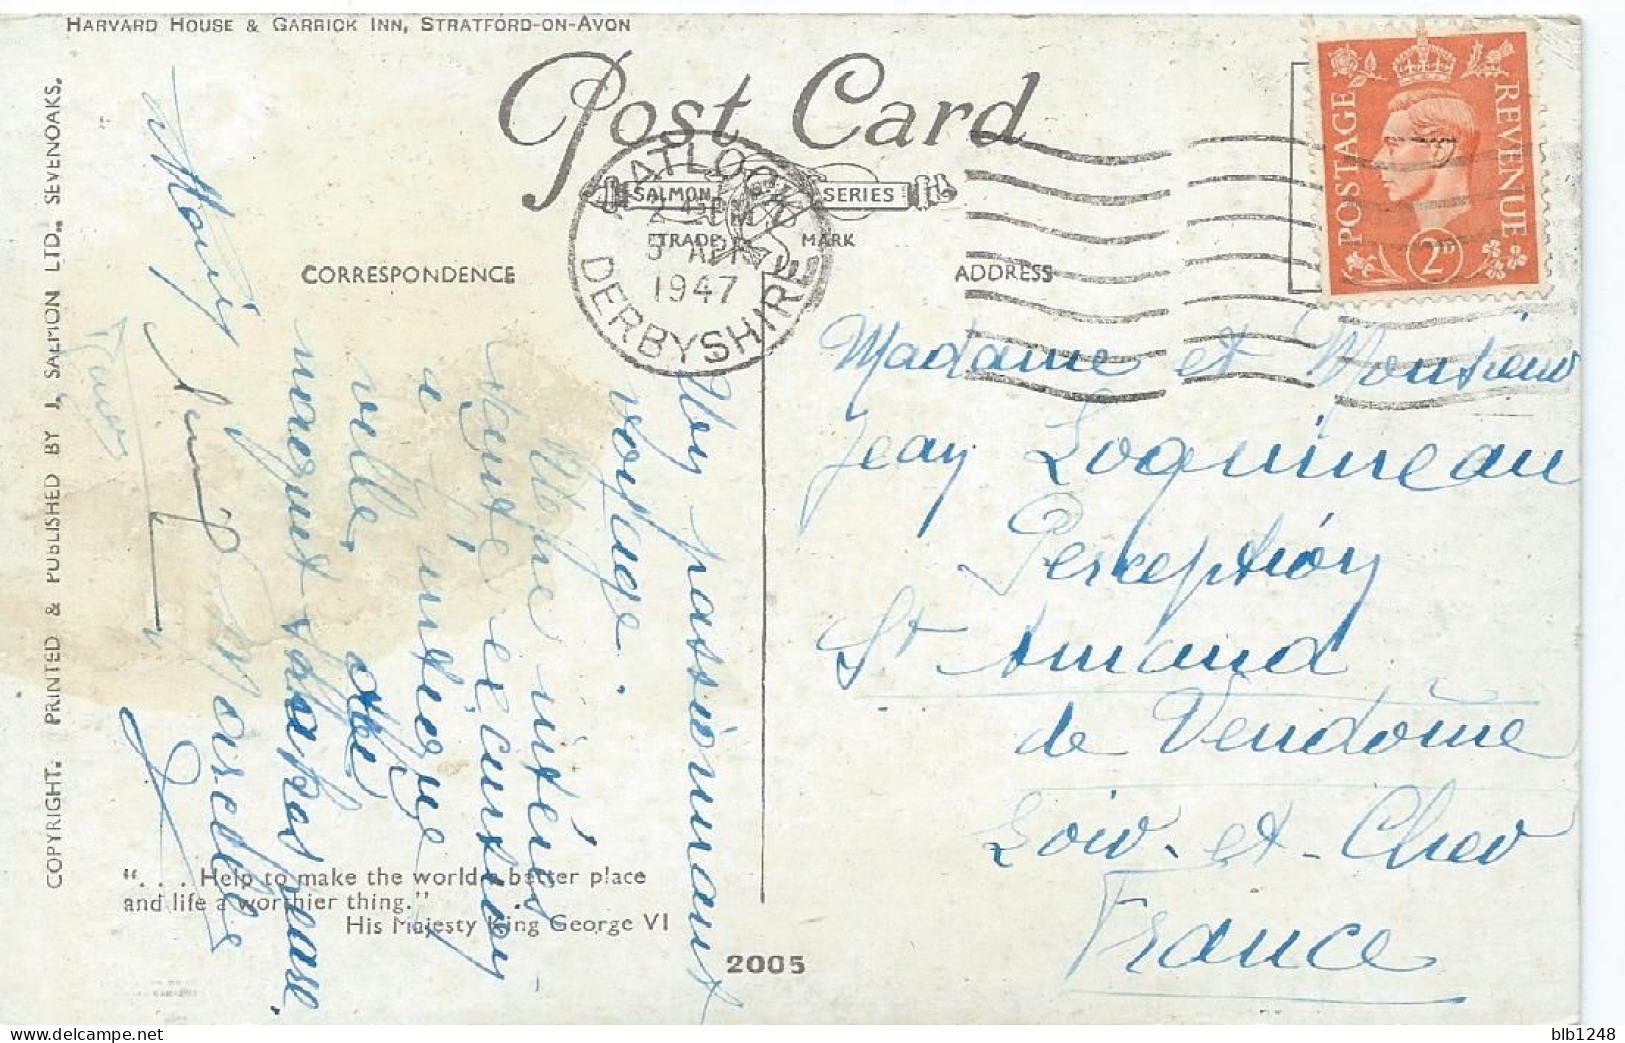 HARVARD HOUSE & GARRICK INN, STRATFORD-ON-AVON
Post Card
SALMON SERIES
TRADE MARK
CORRESPONDENCE
ADDRESS
MATLOCK
DERBYSHIRE
APR
1947
POSTAGE
REVENUE
2D
COPYRIGHT. PRINTED & PUBLISHED BY J. SALMON LTD., SEVENOAKS.
passionnant
voyage.
Une intéres
sante excursion
à l'antique
ville où
naquit Shakespeare.
Marcelle
Madame et Monsieur
Jean Loquineau
Perception
St Amand
de Vendôme
Loir-et-Cher
France
"... Help to make the world a better place
and life a worthier thing."
His Majesty King George VI
2005
blb1248